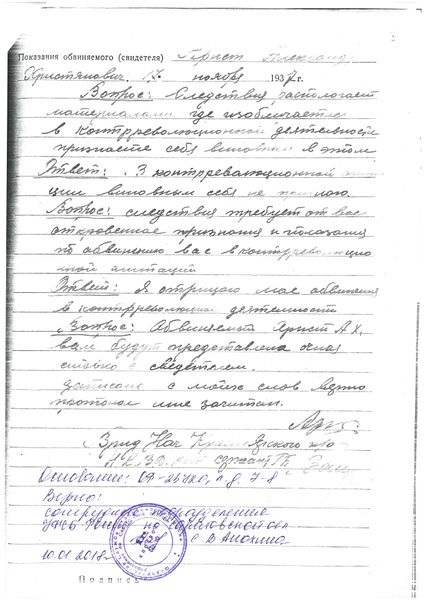 Показания обвиняемого (свидетеля) Христ Александр
Христянович. 17 ноября 1937 г.
Вопрос: Следствия распологает
материалами где изобличаетес
в контрреволюционной деятельности
признаете себя виновным в этом
Ответ: В контрреволюционной агита-
ции виновным себя не признаю.
Вопрос: следствия требует от вас
откровенное признания и показания
по абвинению вас в контрреволюцио
ной агитаций
Ответ: Я отрицаю мое абвинения
в контрреволюцион деятельности
Вопрос: Абвиняемый Христ А Х,
вам будут предоставлена очная
ставка с сведетелем.
Записано с моих слов верно
протокол мне зачитан.
Врид Нач
Н.К.В.Д. сержант ГБ
Основание: л.д. 7-8
Верно:
сотрудник подразделения
УФСБ России по
10.01.2018г.
Подпись